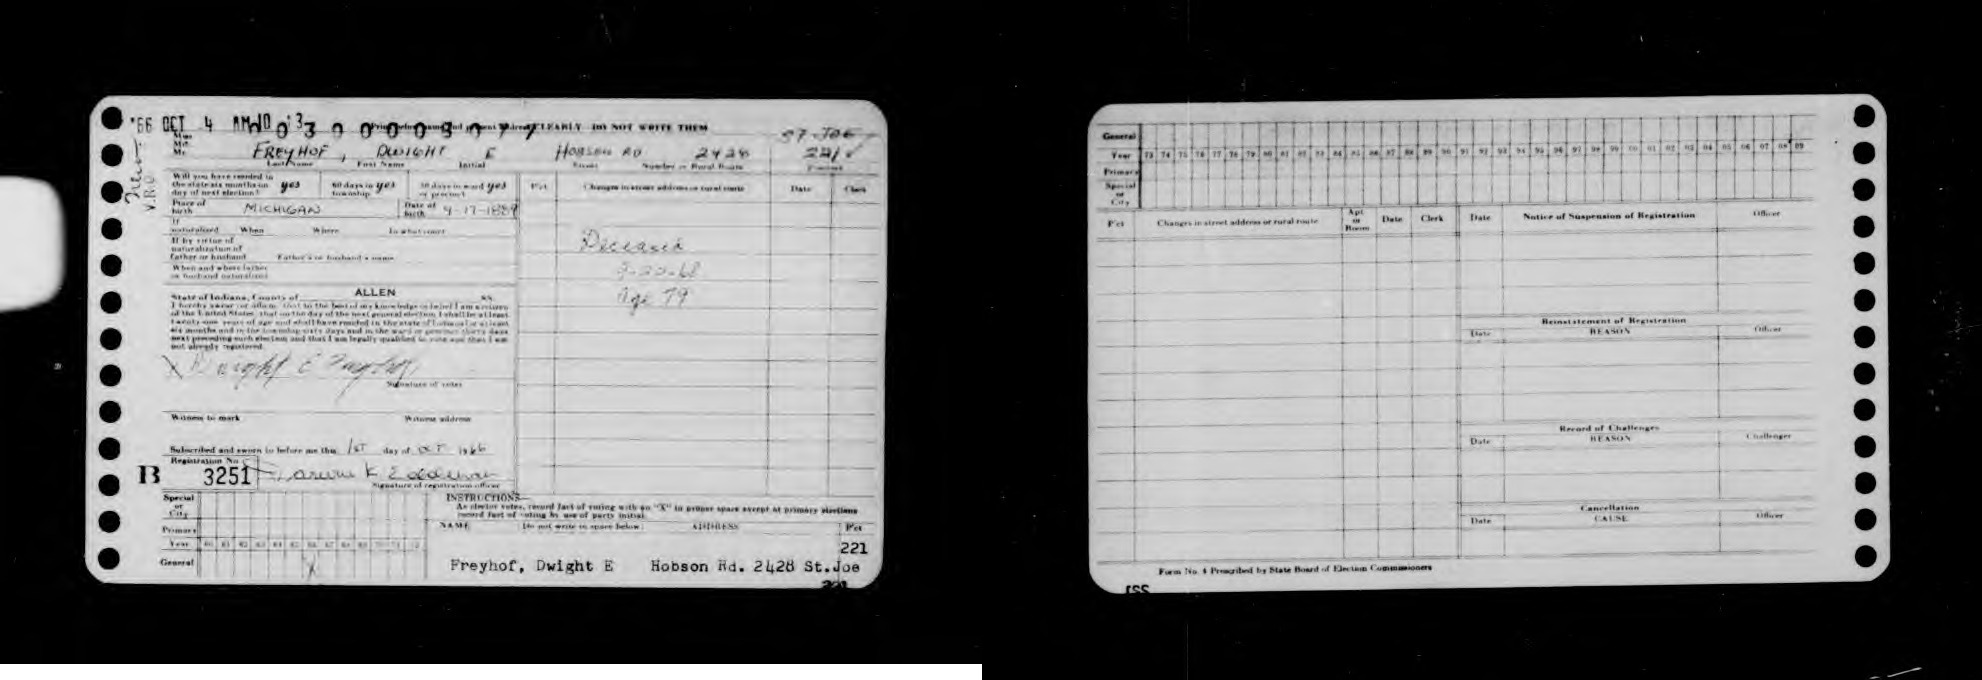 '66 OCT 4 AM 10 13
CLEARLY DO NOT WRITE THEM
ST. JOE
Miss
Mrs.
Mr. FREYHOF, DWIGHT E HOBSON RD 2428 221
Last Name First Name Initial Street Number or Rural Route Precinct
V.R.O.
Will you have resided in
the state six months on yes 60 days in yes 30 days in ward yes
day of next election? township or precinct
Pct Changes in street address or rural route Date Clerk
Place of birth MICHIGAN Date of birth 4-17-1889
If
naturalized When Where In what court
If by virtue of
naturalization of
father or husband Father's or husband's name
When and where father
or husband naturalized
Deceased
9-20-68
Age 79
State of Indiana, County of ALLEN ss.
I hereby swear or affirm, that to the best of my knowledge and belief I am a citizen
of the United States, that on the day of the next general election I shall be at least
twenty-one years of age and shall have resided in the state of Indiana for at least
six months and in the township sixty days and in the ward or precinct thirty days
next preceding such election and that I am legally qualified to vote and that I am
not already registered.
X Dwight E Freyhof
Signature of voter
Witness to mark Witness address
Subscribed and sworn to before me this 1ST day of OCT 1966
Registration No.
B 3251
Signature of registration officer
Special
or
City
Primary
Year 60 61 62 63 64 65 66 67 68 69 70 71 72
General X
INSTRUCTIONS
As elector votes, record fact of voting with an "X" in proper space except at primary elections
record fact of voting by use of party initial.
NAME (Do not write in space below) ADDRESS Pct
221
Freyhof, Dwight E Hobson Rd. 2428 St.Joe
General
Year 73 74 75 76 77 78 79 80 81 82 83 84 85 86 87 88 89 90 91 92 93 94 95 96 97 98 99 00 01 02 03 04 05 06 07 08 09
Primary
Special
or
City
Pct Changes in street address or rural route Apt or Room Date Clerk
Date Notice of Suspension of Registration Officer
Reinstatement of Registration
Date REASON Officer
Record of Challenges
Date REASON Challenger
Cancellation
Date CAUSE Officer
Form No. 4 Prescribed by State Board of Election Commissioners